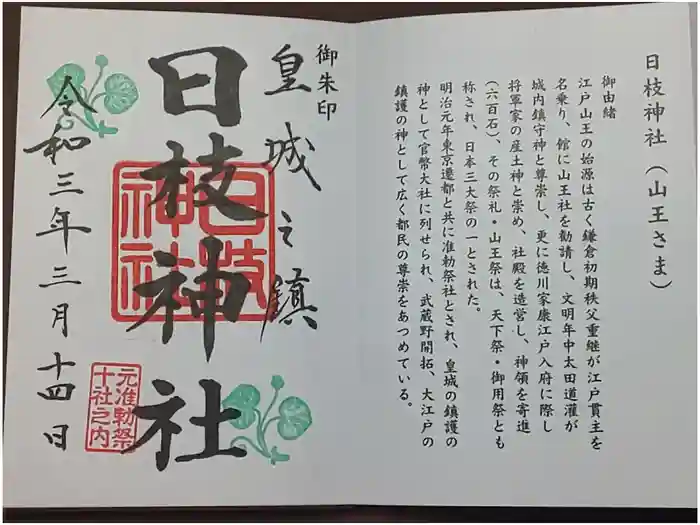 日枝神社（山王さま）
御由緒
江戸山王の始源は古く鎌倉初期秩父重継が江戸貫主を
名乗り、館に山王社を勧請し、文明年中太田道灌が
城内鎮守神と尊崇し、更に徳川家康江戸入府に際し
将軍家の産土神と崇め、社殿を造営し、神領を寄進
（六百石）、その祭礼・山王祭は、天下祭・御用祭とも
称され、日本三大祭の一とされた。
明治元年東京遷都と共に准勅祭社とされ、皇城の鎮護の
神として官幣大社に列せられ、武蔵野開拓、大江戸の
鎮護の神として広く都民の尊崇をあつめている。
御朱印
皇城之鎮
日枝神社
日枝
神社
元准勅祭
十社之内
令和三年三月十四日